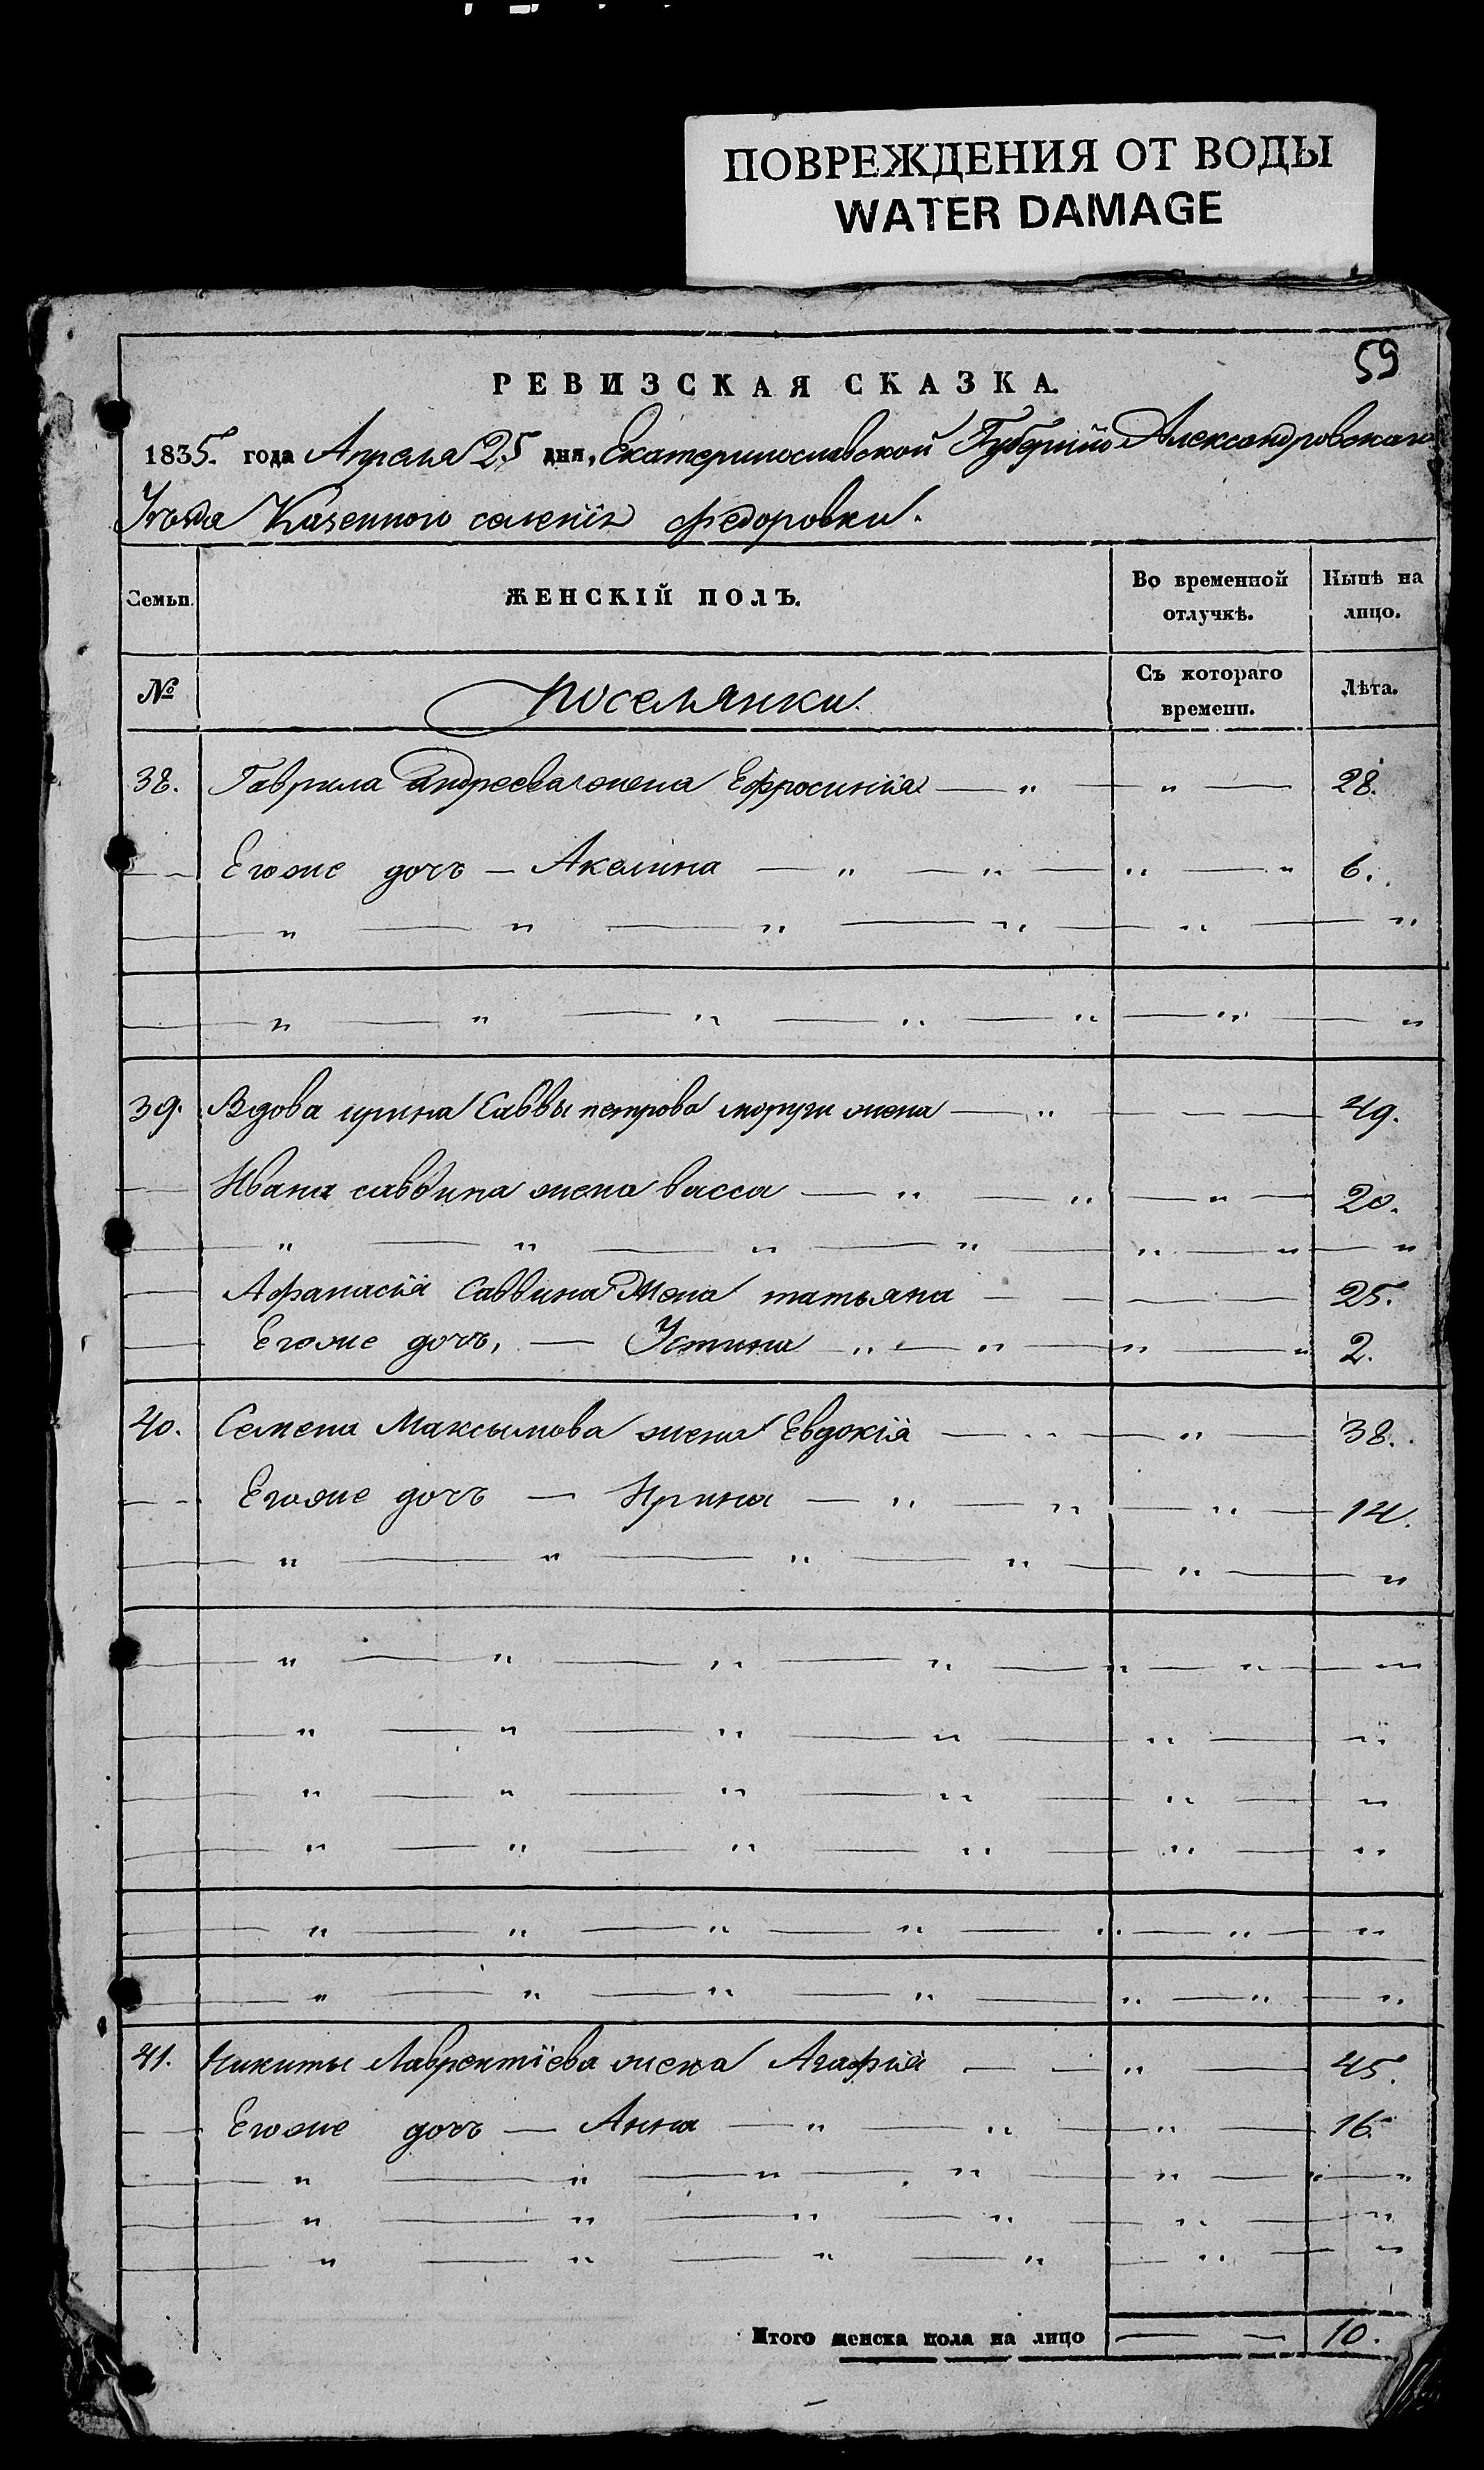 ПОВРЕЖДЕНИЯ ОТ ВОДЫ
WATER DAMAGE
59
РЕВИЗСКАЯ СКАЗКА.
1835. года Апреля 25 дня, Екатеринославской Губернiи Александровскаго
Уезда Казенного селенiя Федоровки.
Семьи. ЖЕНСКІЙ ПОЛЪ. Во временной отлучкѣ. Нынѣ на лицо.
№ поселянки. Съ котораго времени. Лѣта.
38. Гаврила андреева жена Ефросинiя — " — " — 28.
— — Егоже дочь — Акелина — " — " — " — " 6.
— " — " — " — " — " — "
— " — " — " — " — " — " — "
39. Вдова ирина Саввы петрова жена — " — — — 49.
— Ивана саввина жена васса — " — " — " — 20.
— " — " — " — " — " — " — "
— Афанасiя Саввина Жена татьяна — — — 25.
— Егоже дочь, — Устина " — " — " — " 2.
40. Семена Максымова жена Евдокiя — " — " — 38.
— — Егоже дочь — Ирина — " — " — " — 14.
— " — " — " — " — " — "
— " — " — " — " — " — " — "
— " — " — " — " — " — "
— " — " — " — " — " — "
— " — " — " — " — " — "
— " — " — " — " — " — " — "
— " — " — " — " — " — " — "
41. Никиты Лаврентïева жена Агафiя — — " — 45.
— — Егоже дочь — Анна — " — " — " — 16.
— " — " — " — " — " — " — "
— " — " — " — " — " — "
— " — " — " — " — " — "
Итого женска пола на лицо — — 10.